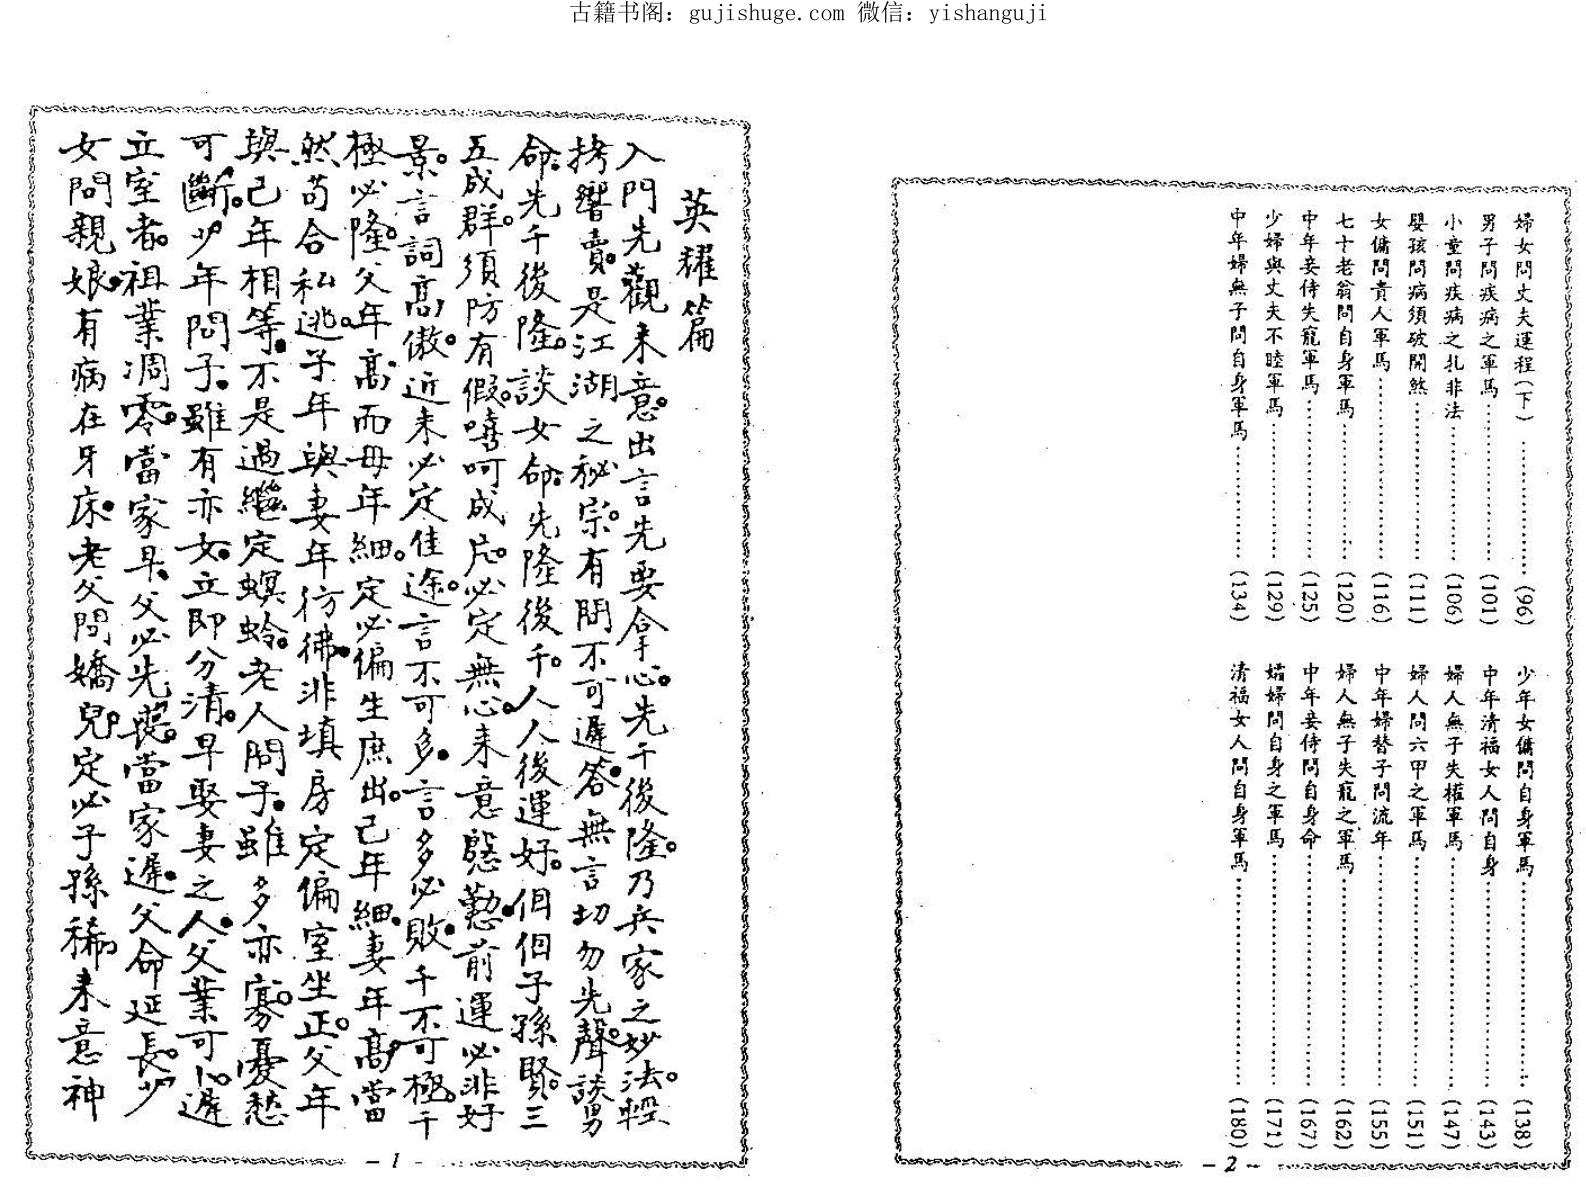 古籍书阁：gujishuge.com 微信：yishanguji
婦女問丈夫運程(下)……………(96)
男子問疾病之軍馬……………(101)
小童問疾病之扎非法……………(106)
嬰孩問病須破開煞……………(111)
女傭問貴人軍馬……………(116)
七十老翁問自身軍馬……………(120)
中年妾侍失寵軍馬……………(125)
少婦與丈夫不睦軍馬……………(129)
中年婦無子問自身軍馬……………(134)
少年女傭問自身軍馬……………(138)
中年清福女人問自身……………(143)
婦人無子失權軍馬……………(147)
婦人問六甲之軍馬……………(151)
中年婦替子問流年……………(155)
婦人無子失寵之軍馬……………(162)
中年妾侍問自身命……………(167)
孀婦問自身之軍馬……………(171)
清福女人問自身軍馬……………(180)
-2-
英耀篇
入門先觀来意。出言先要拿心。先千後隆。乃兵家之妙法。輕
拷響賣。是江湖之秘宗。有問不可遲答。無言切勿先聲。談男
命。先千後隆。談女命。先隆後千。人人後運好。個個子孫賢。三
五成群。須防有假。嘻呵成片。必定無心。来意慇懃。前運必非好
景。言詞高傲。近来必定佳途。言不可多。言多必敗。千不可極。千
極必隆。父年高而母年細。定必偏生庶出。己年細。妻年高。當
然苟合私逃。子年與妻年彷彿。非填房定偏室坐正。父年
與己年相等。不是過繼定螟蛉。老人問子。雖多亦寡。憂愁
可斷。少年問子。雖有亦女。立即分清。早娶妻之人。父業可心。遲
立室者。祖業凋零。當家早。父必先喪。當家遲。父命延長。少
女問親娘。有病在牙床。老父問嬌兒。定必子孫稀。来意神
-1-